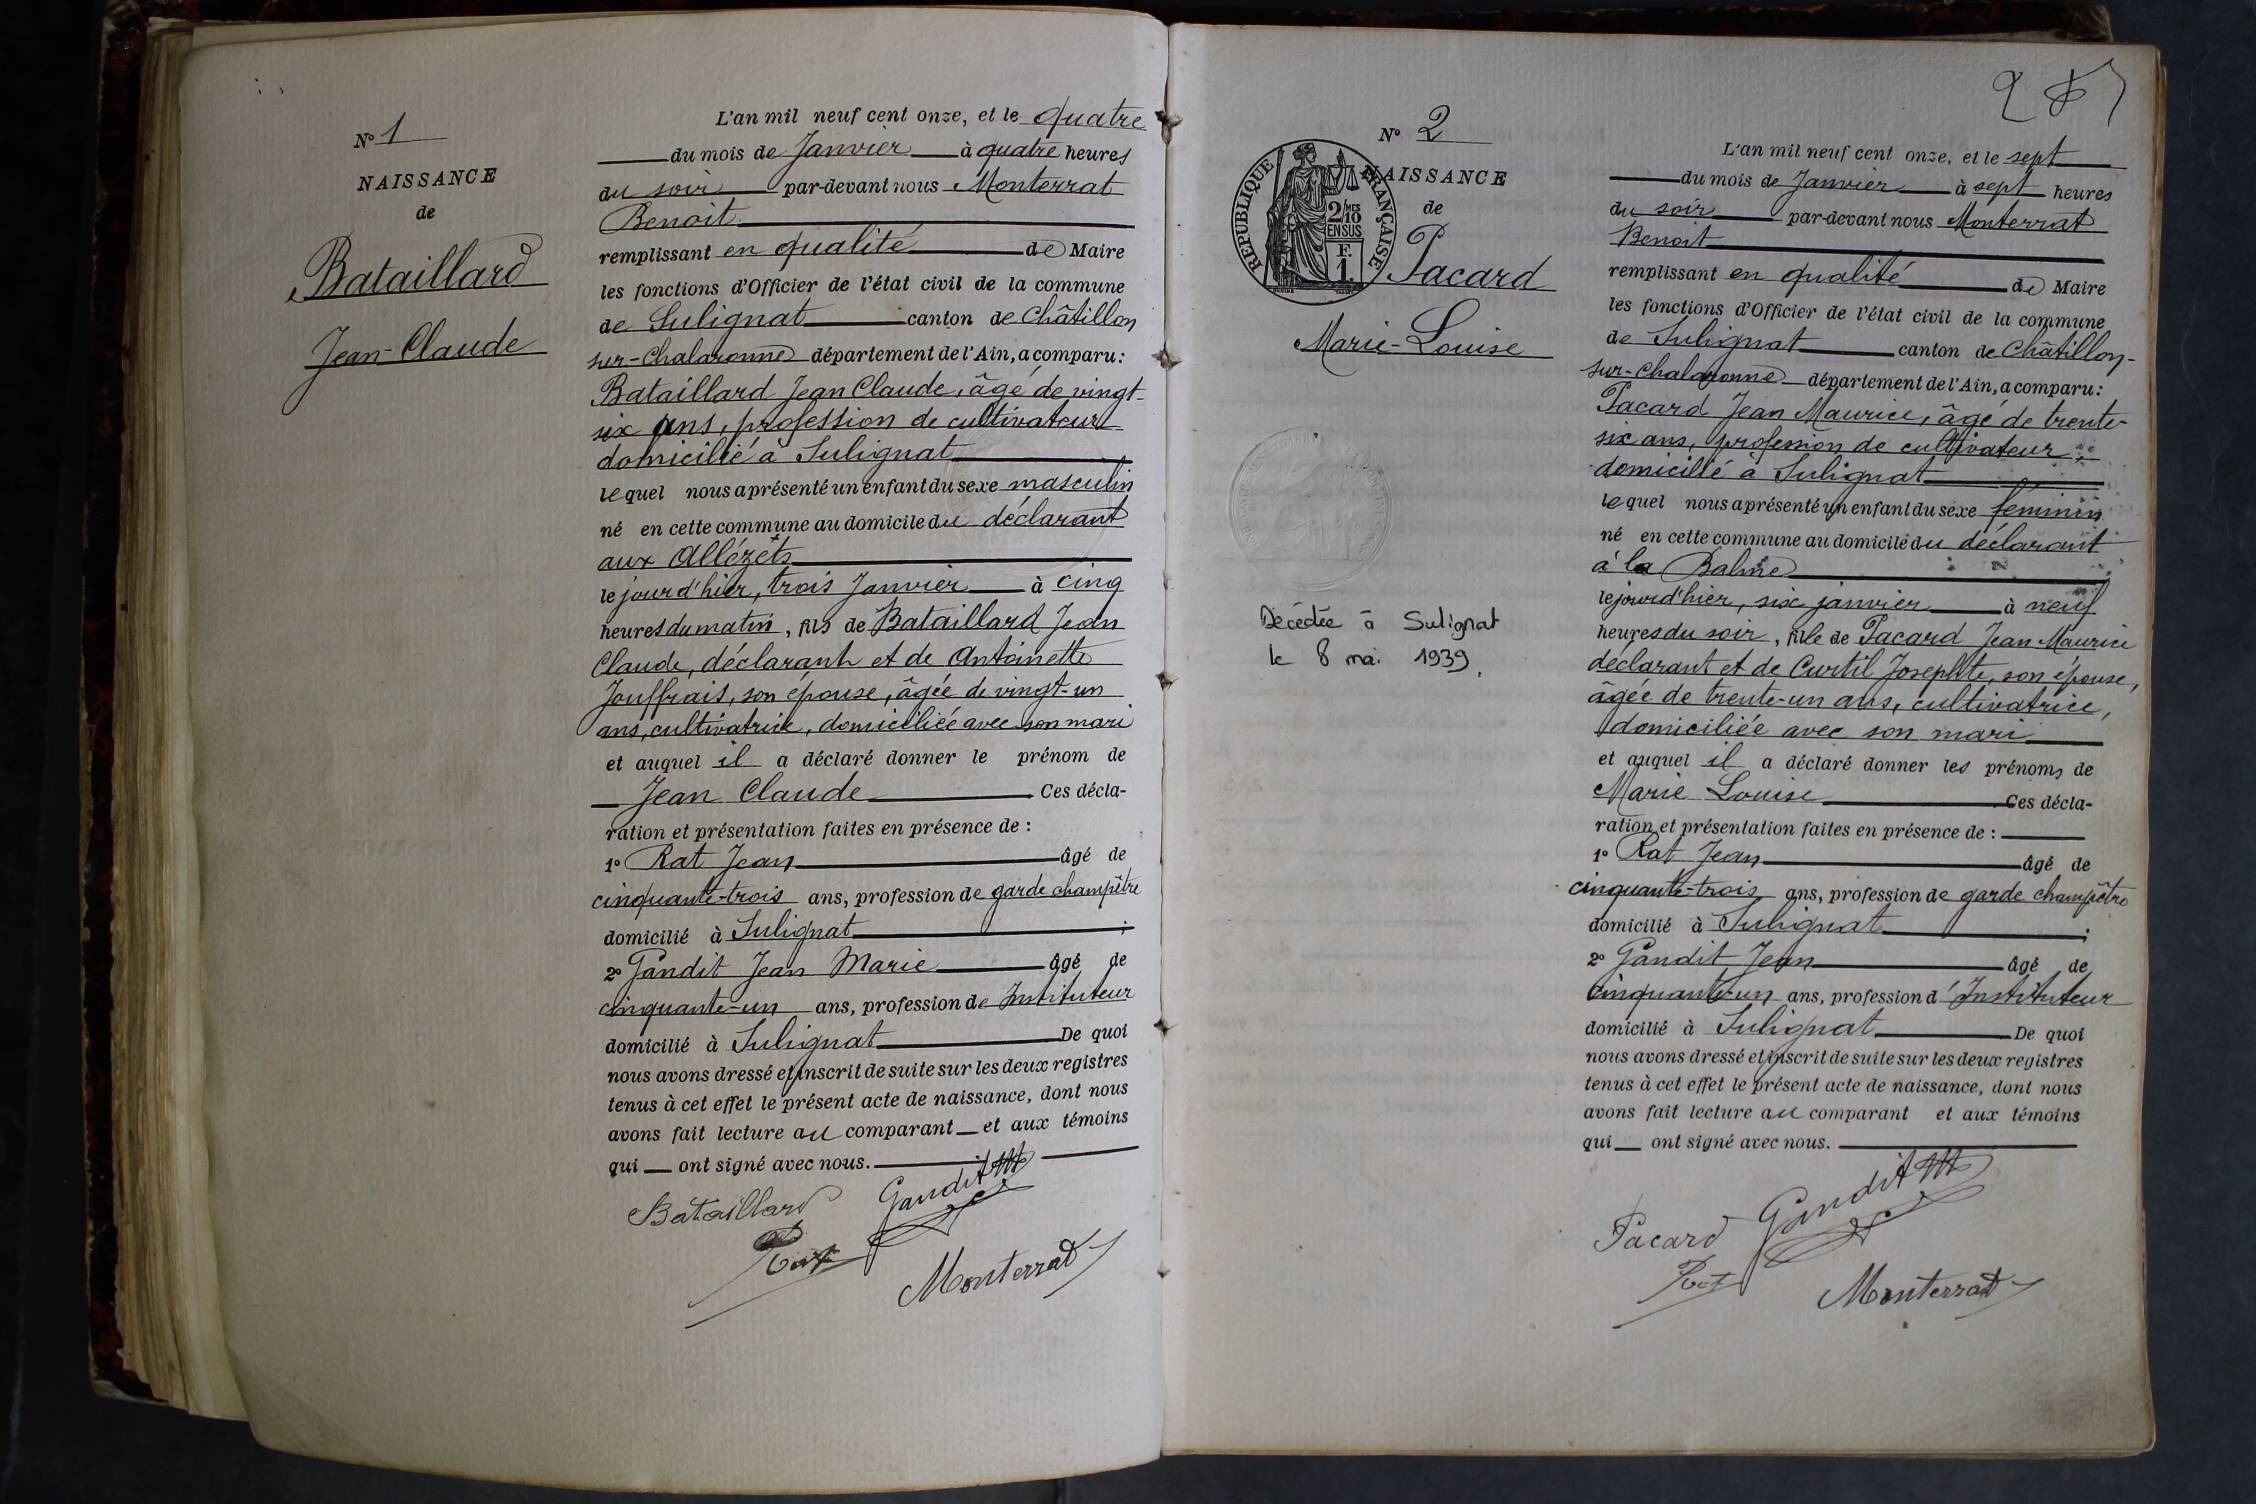 N° 1
NAISSANCE
de
Bataillard
Jean-Claude
L'an mil neuf cent onze, et le quatre
du mois de Janvier à quatre heures
du soir par-devant nous Monterrat
Benoit
remplissant en qualité de Maire
les fonctions d'Officier de l'état civil de la commune
de Sulignat canton de Châtillon
sur-Chalaronne département de l'Ain, a comparu :
Bataillard Jean Claude, âgé de vingt-
six ans, profession de cultivateur
domicilié à Sulignat
lequel nous a présenté un enfant du sexe masculin
né en cette commune au domicile du déclarant
aux Allézets
le jourd'hier, trois Janvier à cinq
heures du matin, fils de Bataillard Jean
Claude, déclarant et de Antoinette
Jouffrais, son épouse, âgée de vingt-un
ans, cultivatrice, domiciliée avec son mari
et auquel il a déclaré donner le prénom de
Jean Claude Ces décla-
ration et présentation faites en présence de :
1° Rat Jean âgé de
cinquante-trois ans, profession de garde champêtre
domicilié à Sulignat ;
2° Gandit Jean Marie âgé de
cinquante-un ans, profession de Instituteur
domicilié à Sulignat De quoi
nous avons dressé et inscrit de suite sur les deux registres
tenus à cet effet le présent acte de naissance, dont nous
avons fait lecture au comparant et aux témoins
qui ont signé avec nous.
Bataillard Gandit JM
Rat
Monterrat
N° 2
NAISSANCE
de
REPUBLIQUE FRANÇAISE
2/MES
10
EN SUS
F.
1.
Pacard
Marie-Louise
Décédée à Sulignat
le 8 mai 1939.
L'an mil neuf cent onze, et le sept
du mois de Janvier à sept heures
du soir par-devant nous Monterrat
Benoit
remplissant en qualité de Maire
les fonctions d'Officier de l'état civil de la commune
de Sulignat canton de Châtillon-
sur-Chalaronne département de l'Ain, a comparu :
Pacard Jean Maurice, âgé de trente-
six ans, profession de cultivateur,
domicilié à Sulignat
lequel nous a présenté un enfant du sexe féminin
né en cette commune au domicile du déclarant
à la Balme
le jourd'hier, six janvier à neuf
heures du soir, fille de Pacard Jean Maurice
déclarant et de Curtil Josephte, son épouse,
âgée de trente-un ans, cultivatrice,
domiciliée avec son mari
et auquel il a déclaré donner les prénoms de
Marie Louise Ces décla-
ration et présentation faites en présence de :
1° Rat Jean âgé de
cinquante-trois ans, profession de garde champêtre
domicilié à Sulignat ;
2° Gandit Jean âgé de
cinquante-un ans, profession d'Instituteur
domicilié à Sulignat De quoi
nous avons dressé et inscrit de suite sur les deux registres
tenus à cet effet le présent acte de naissance, dont nous
avons fait lecture au comparant et aux témoins
qui ont signé avec nous.
Pacard Gandit JM
Rat
Monterrat